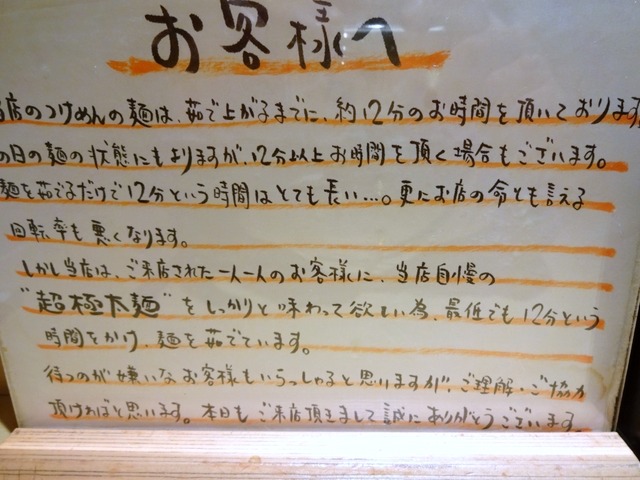 お客様へ
当店のつけめんの麺は、茹で上がるまでに、約12分のお時間を頂いております
の日の麺の状態にもよりますが、12分以上お時間を頂く場合もございます。
麺を茹でるだけで12分という時間はとても長い…。更にお店の命とも言える
回転率も悪くなります。
しかし当店は、ご来店された一人一人のお客様に、当店自慢の
"超極太麺"をしっかりと味わって欲しい為、最低でも12分という
時間をかけ、麺を茹でています。
待つのが嫌いなお客様もいらっしゃると思いますが、ご理解・ご協力
頂ければと思います。本日もご来店頂きまして誠にありがとうございます。